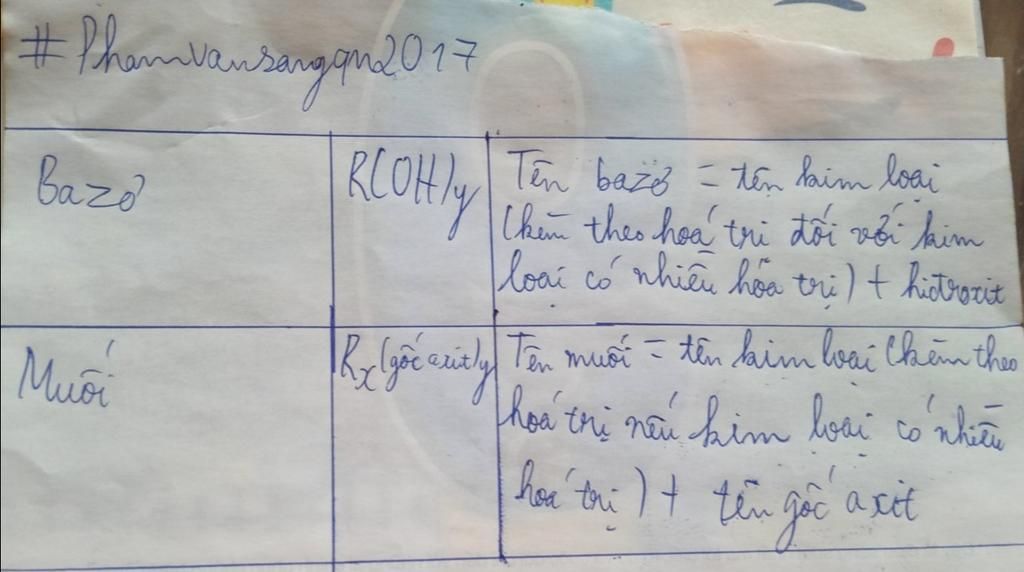 #Phamvansangqn2017
Bazơ
R(OH)y
Tên bazơ = tên kim loại
(kèm theo hoá trị đối với kim
loại có nhiều hóa trị) + hiđroxit
Muối
Rx(gốc axit)y
Tên muối = tên kim loại (kèm theo
hoá trị nếu kim loại có nhiều
hoá trị) + tên gốc axit